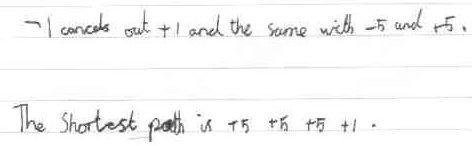 -1 cancels out +1 and the same with -5 and +5.
The Shortest path is +5 +5 +5 +1.